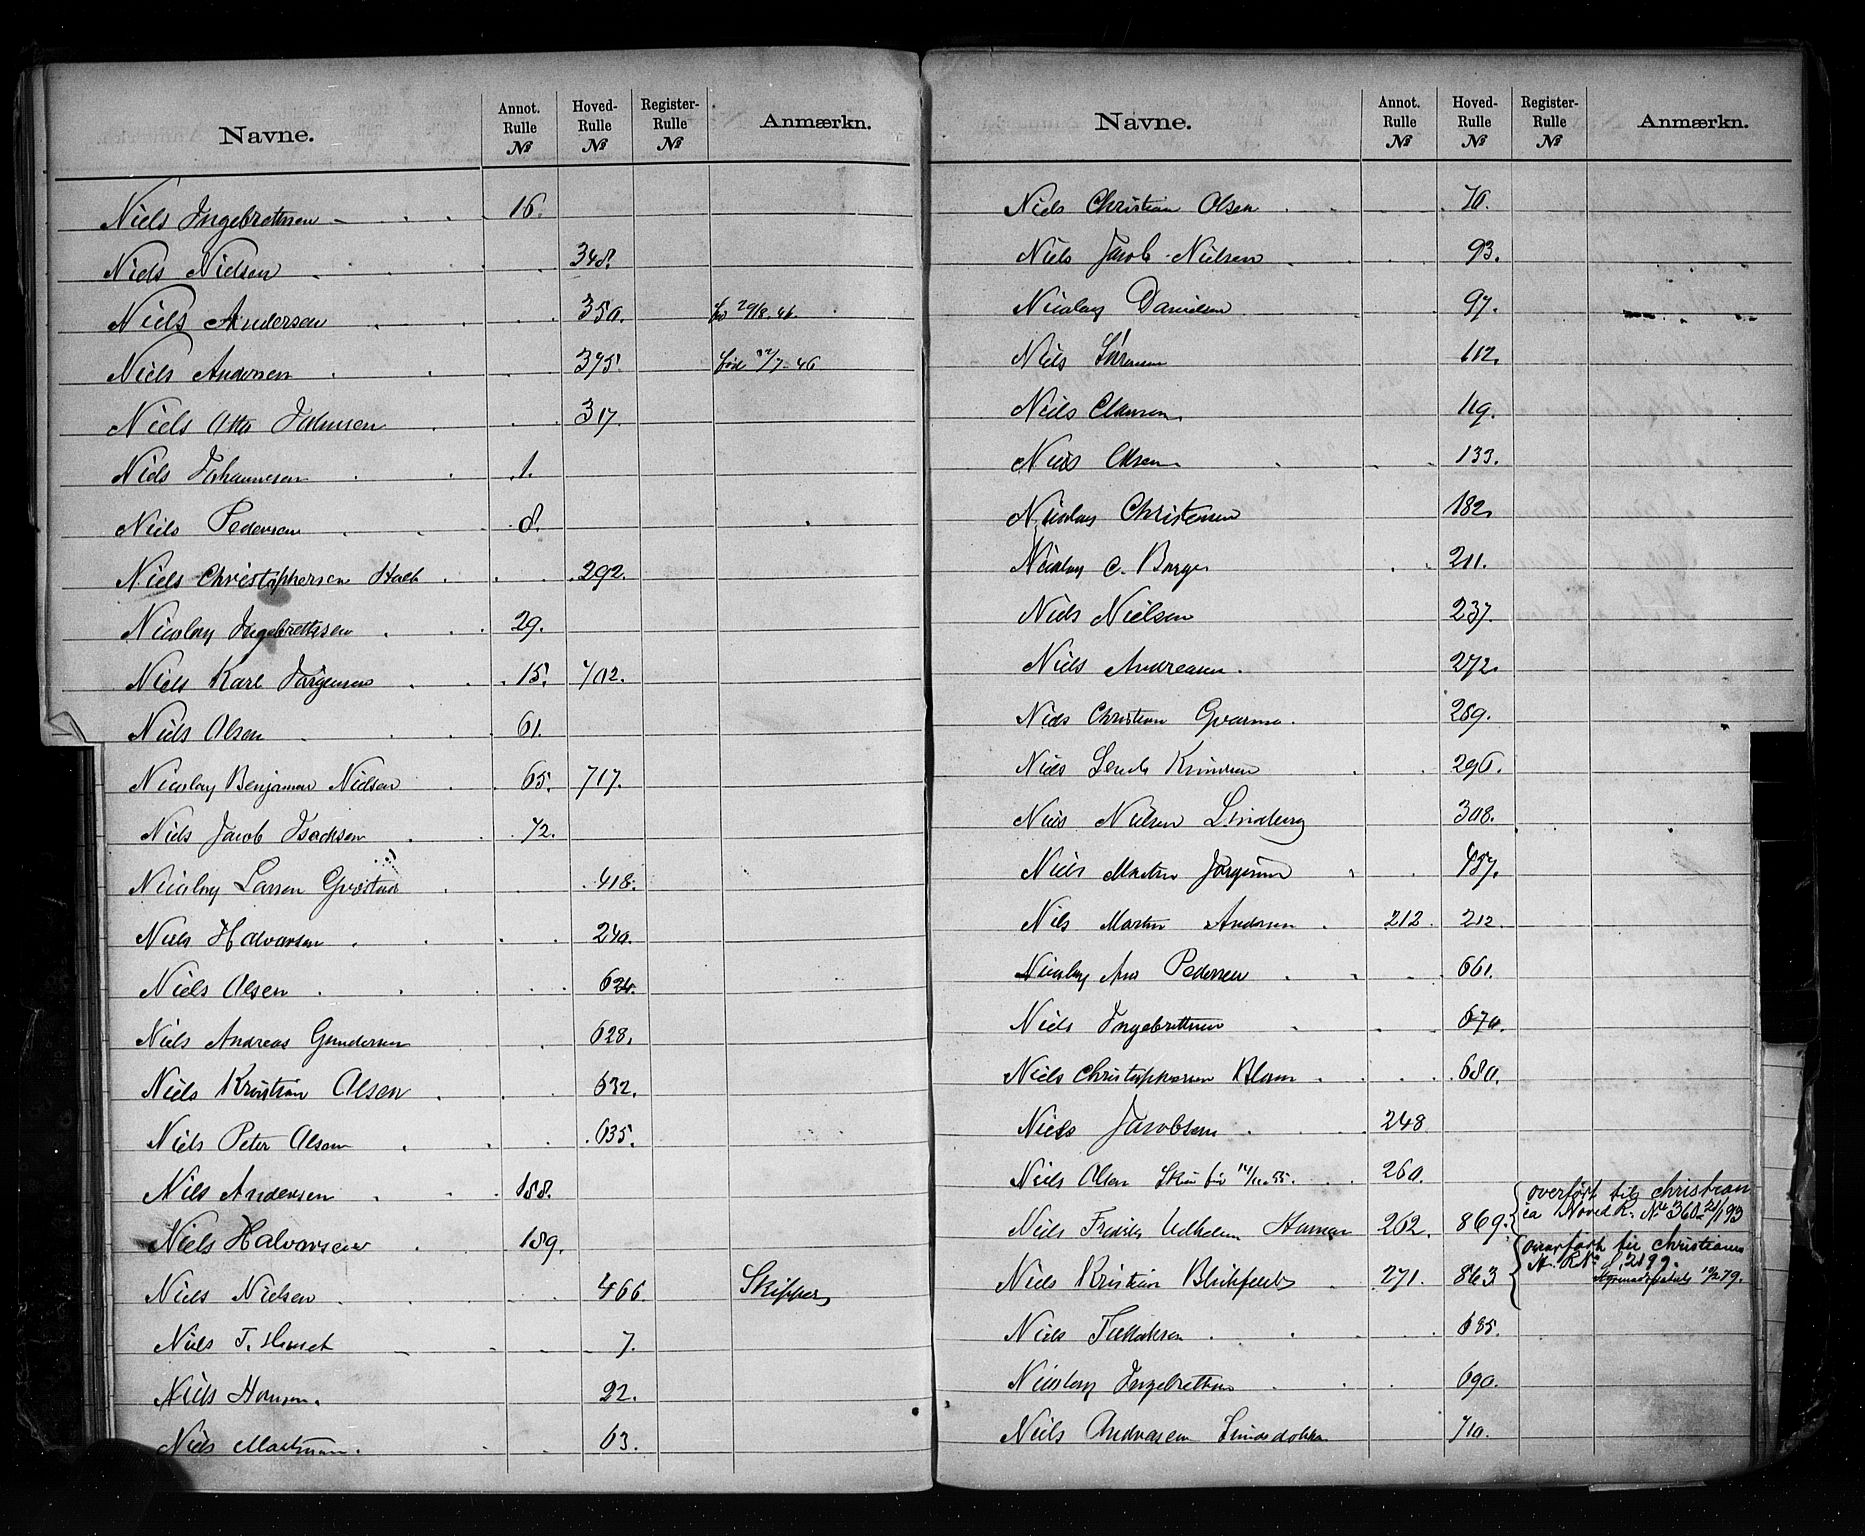 Navne. Annot. Rulle № Hoved- Rulle № Register- Rulle № Anmærkn.
Niels Ingebretsen 16.
Niels Nielsen 348.
Niels Andersen 350. 29/8. 46
Niels Andersen 375. 46
Niels Otto Johnsen 317.
Niels Johannesen 1.
Niels Pedersen 8.
Niels Christophersen 292.
Nicolay Ingebretsen 29.
Niels Karl Jørgensen 15. 702.
Niels Olsen 61.
Nicolay Benjamin Nielsen 65. 717.
Niels Jacob Isachsen 72.
Nicolay Larsen 418.
Niels Halvorsen 240.
Niels Olsen 624.
Niels Andreas Gundersen 628.
Niels Kristian Olsen 632.
Niels Peter Olsen 635.
Niels Andersen 158.
Niels Halvorsen 159.
Niels Nielsen 466. Skipper
Niels T. 7.
Niels Hansen. 22.
Niels 63.
Navne. Annot. Rulle № Hoved- Rulle № Register- Rulle № Anmærkn.
Niels Christian Olsen 70.
Niels Jacob Nielsen 93.
Nicolay Danielsen 97.
Niels Sørensen 112.
Niels Clausen 119.
Niels Olsen 133.
Nicolay Christensen 182.
Nicolay C. Borge 211.
Niels Nielsen 237.
Niels Andreasen. 272.
Niels Christian 289.
Niels 296.
Niels Nielsen Lindberg 308.
Niels Martin Jørgensen 457.
Niels Martin Andersen 212. 212.
Nicolay And Pedersen 661.
Niels Ingebretsen 670.
Niels Christophersen Blom 680.
Niels Jacobsen 248
Niels Olsen 14/11.55. 260.
overført til Christian
ia Hoved R. No 360 21/1 93
Niels Fredrik Vilhelm Hansen 262. 869.
overført til Christiania
H. R No 2199.
Niels Kristian Blichfeldt 271. 863 79.
Niels 685.
Nicolay Ingebretsen 690.
Niels Andreasen 710.